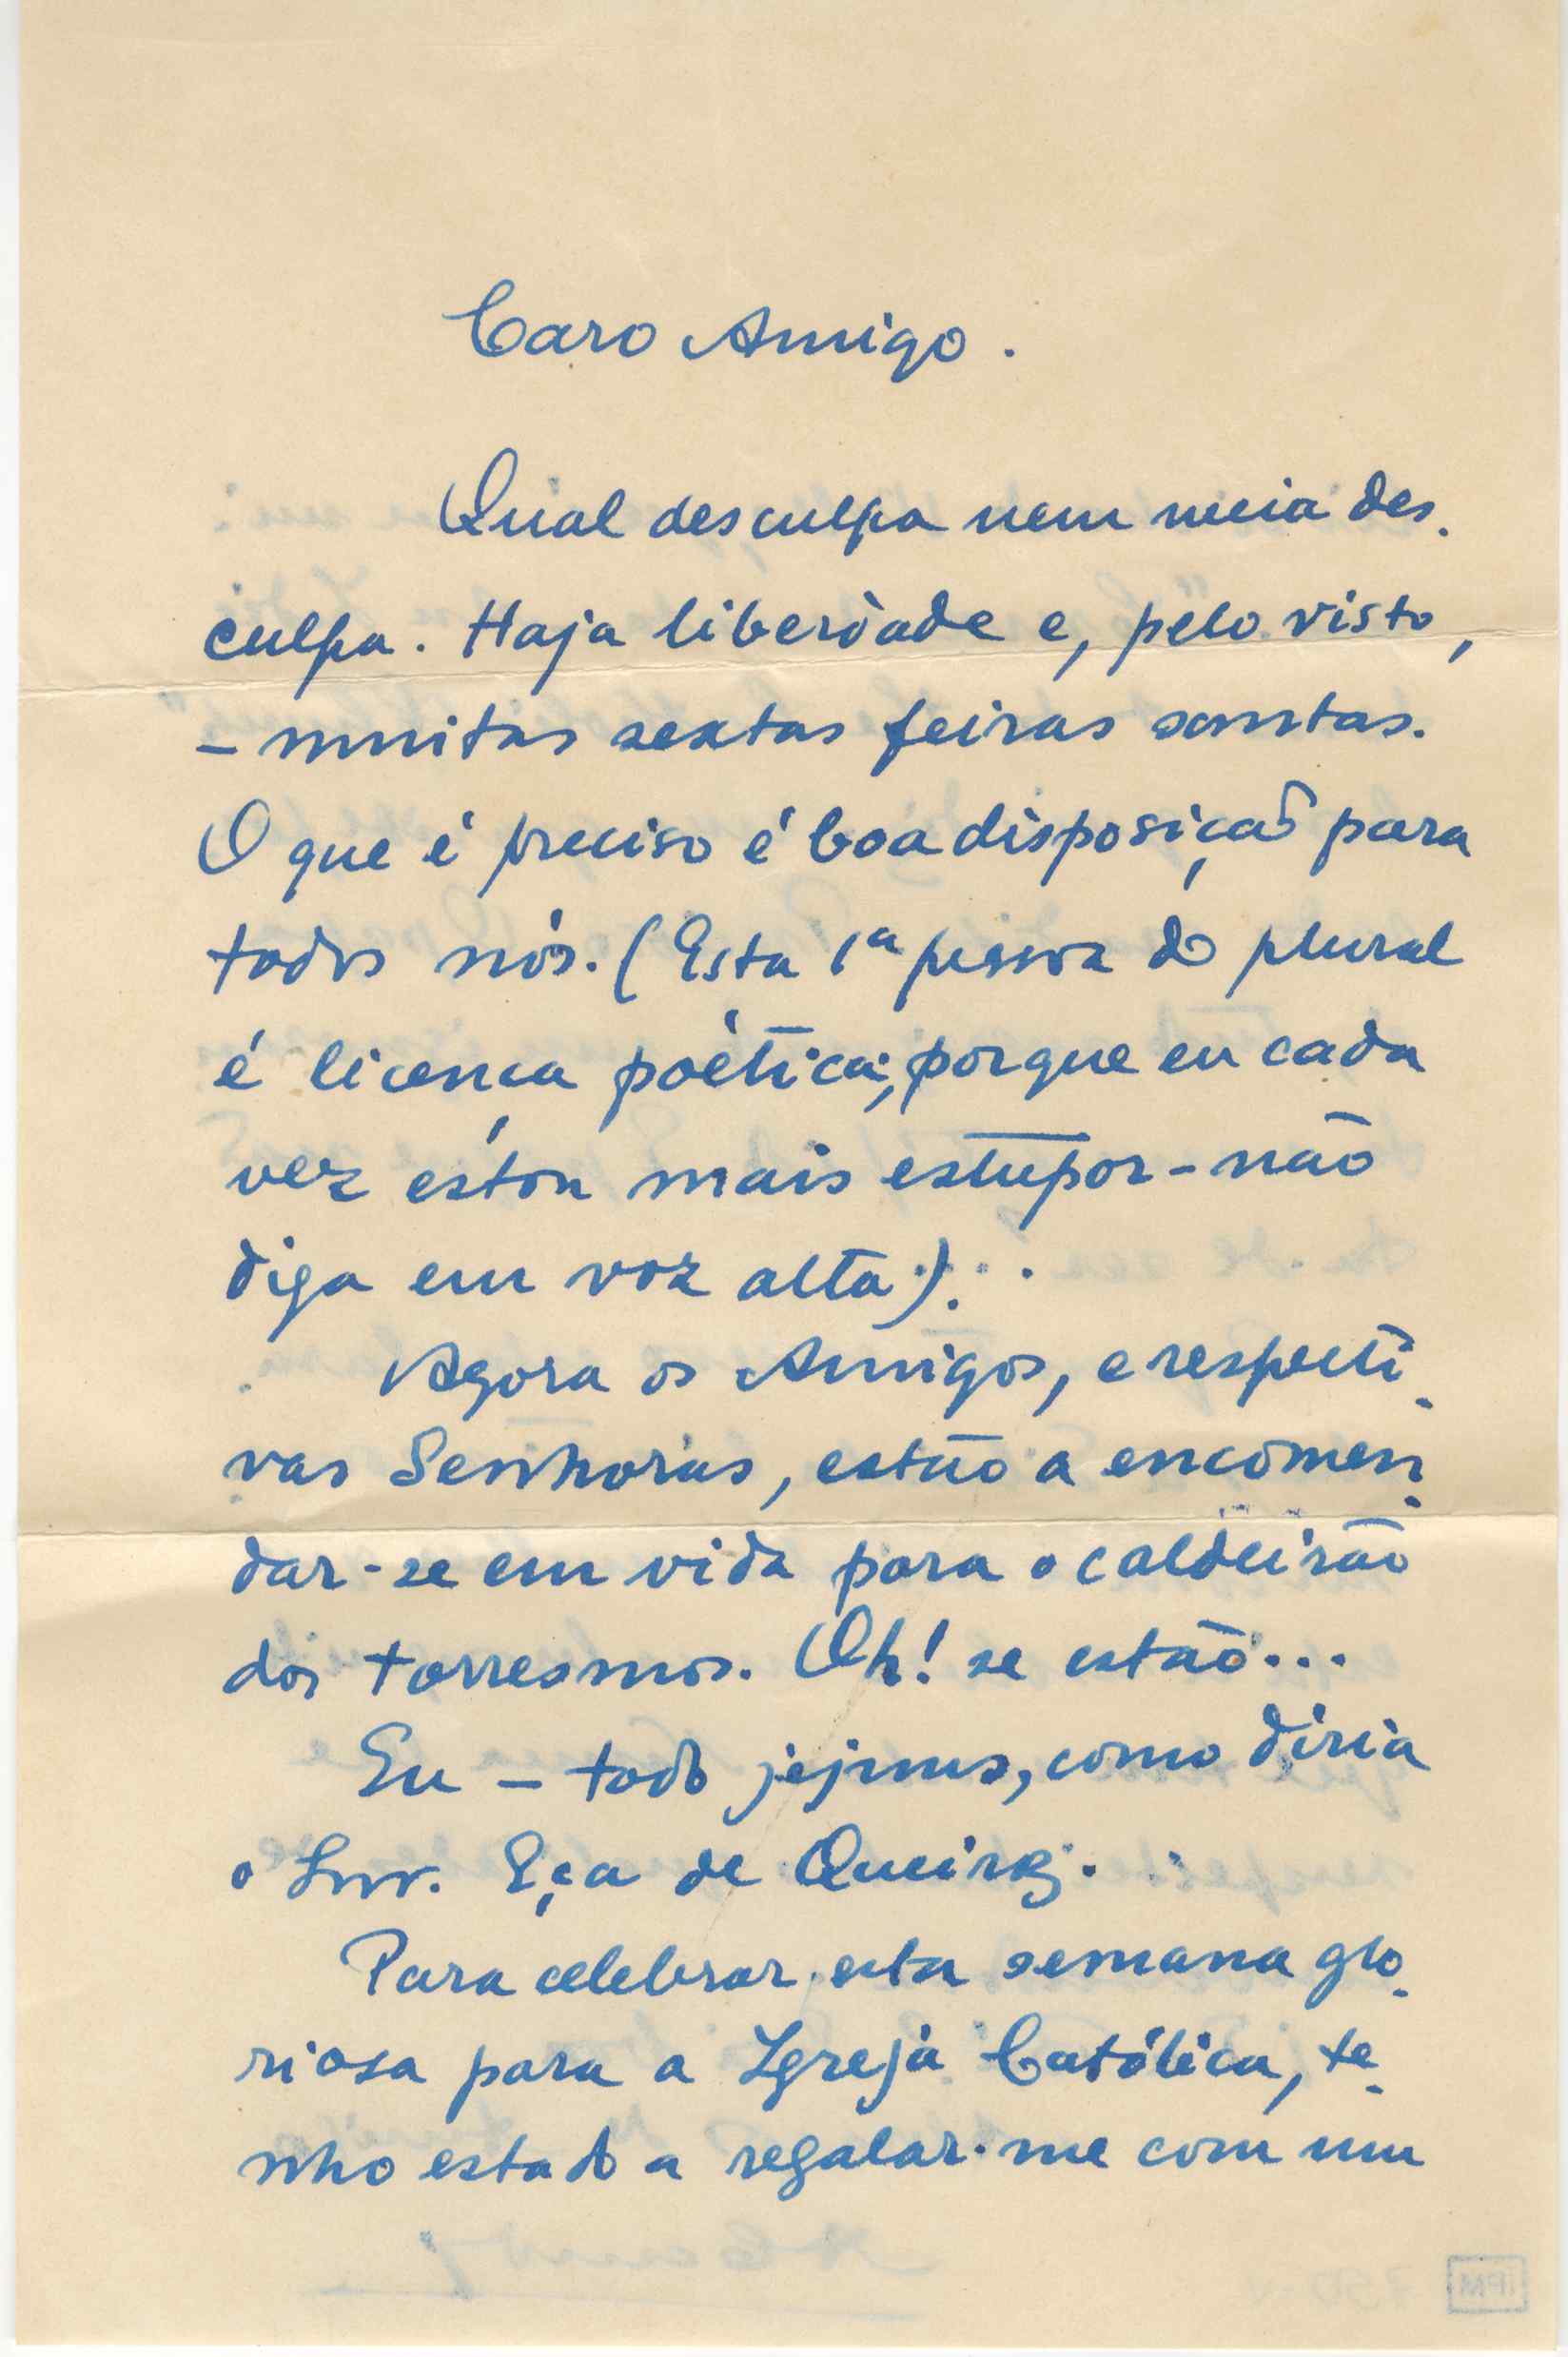 Caro Amigo.
Qual desculpa nem meia des-
culpa. Haja liberdade e, pelo visto,
- muitas sextas feiras santas.
O que é preciso é boa disposição para
todos nós. (Esta 1ª pessoa do plural
é licença poética; porque eu cada
vez estou mais estupor - não
diga em voz alta)...
Agora os Amigos, e respecti-
vas Senhoras, estão a encomen-
dar-se em vida para o caldeirão
dos torresmos. Oh! se estão...
Eu - todo jejuns, como diria
o Snr. Eça de Queiroz.
Para celebrar esta semana glo-
riosa para a Igreja Católica, te-
nho estado a regalar-me com um